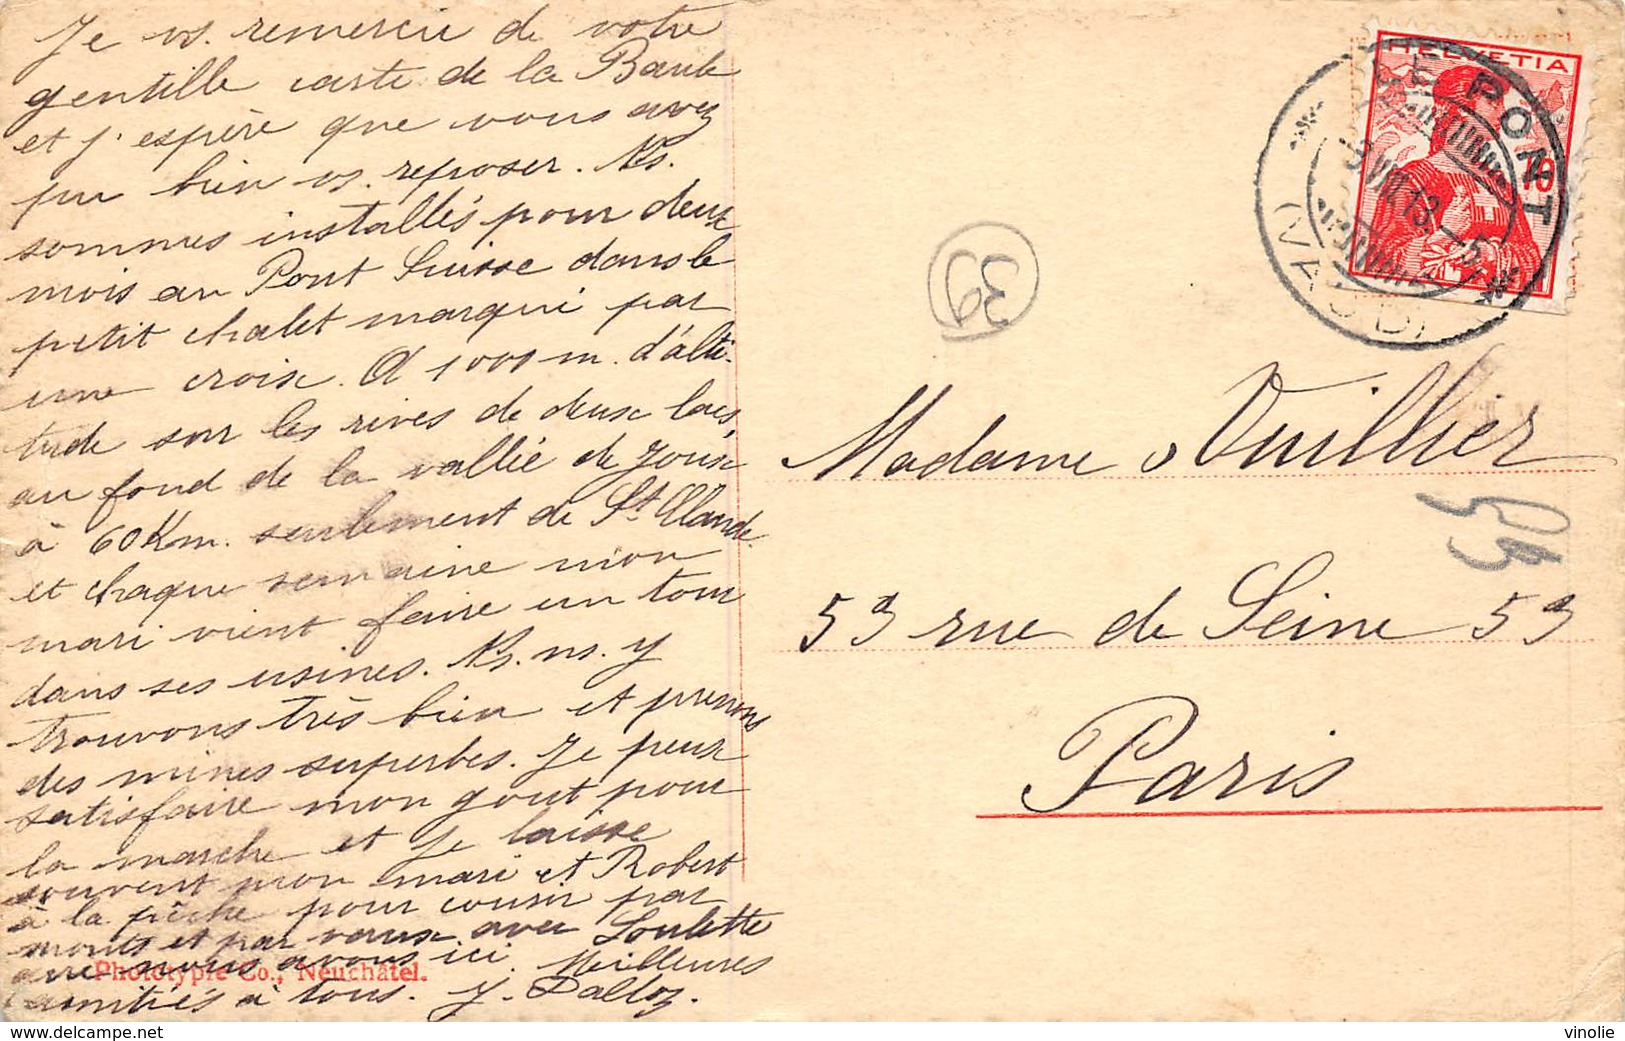 Je vs. remercie de votre
gentille carte de la Baule
et j'espère que vous avez
pu bien vs. reposer. Ns.
sommes installés pour deux
mois au Pont Suisse dans le
petit chalet marqué par
une croix. A 1000 m. d'alti-
tude sur les rives de deux lacs,
au fond de la vallée de Joux
à 60 Km. seulement de St. Claude.
et chaque semaine mon
mari vient faire un tour
dans ses usines. Ns. ns. y
trouvons très bien et prenons
des mines superbes. Je peux
satisfaire mon gout pour
la marche et je laisse
souvent mon mari et Robert
à la pêche pour courir par
monts et par vaux avec Loulette
que nous avons ici. Meilleures
amitiés à tous. J. Dalloz.
Phototypie Co., Neuchâtel.
HELVETIA
10
LE PONT
VIII.13.-5
(VAUD)
39
Madame Vuillier
53 rue de Seine 53
Paris
vinolie
delcampe.net